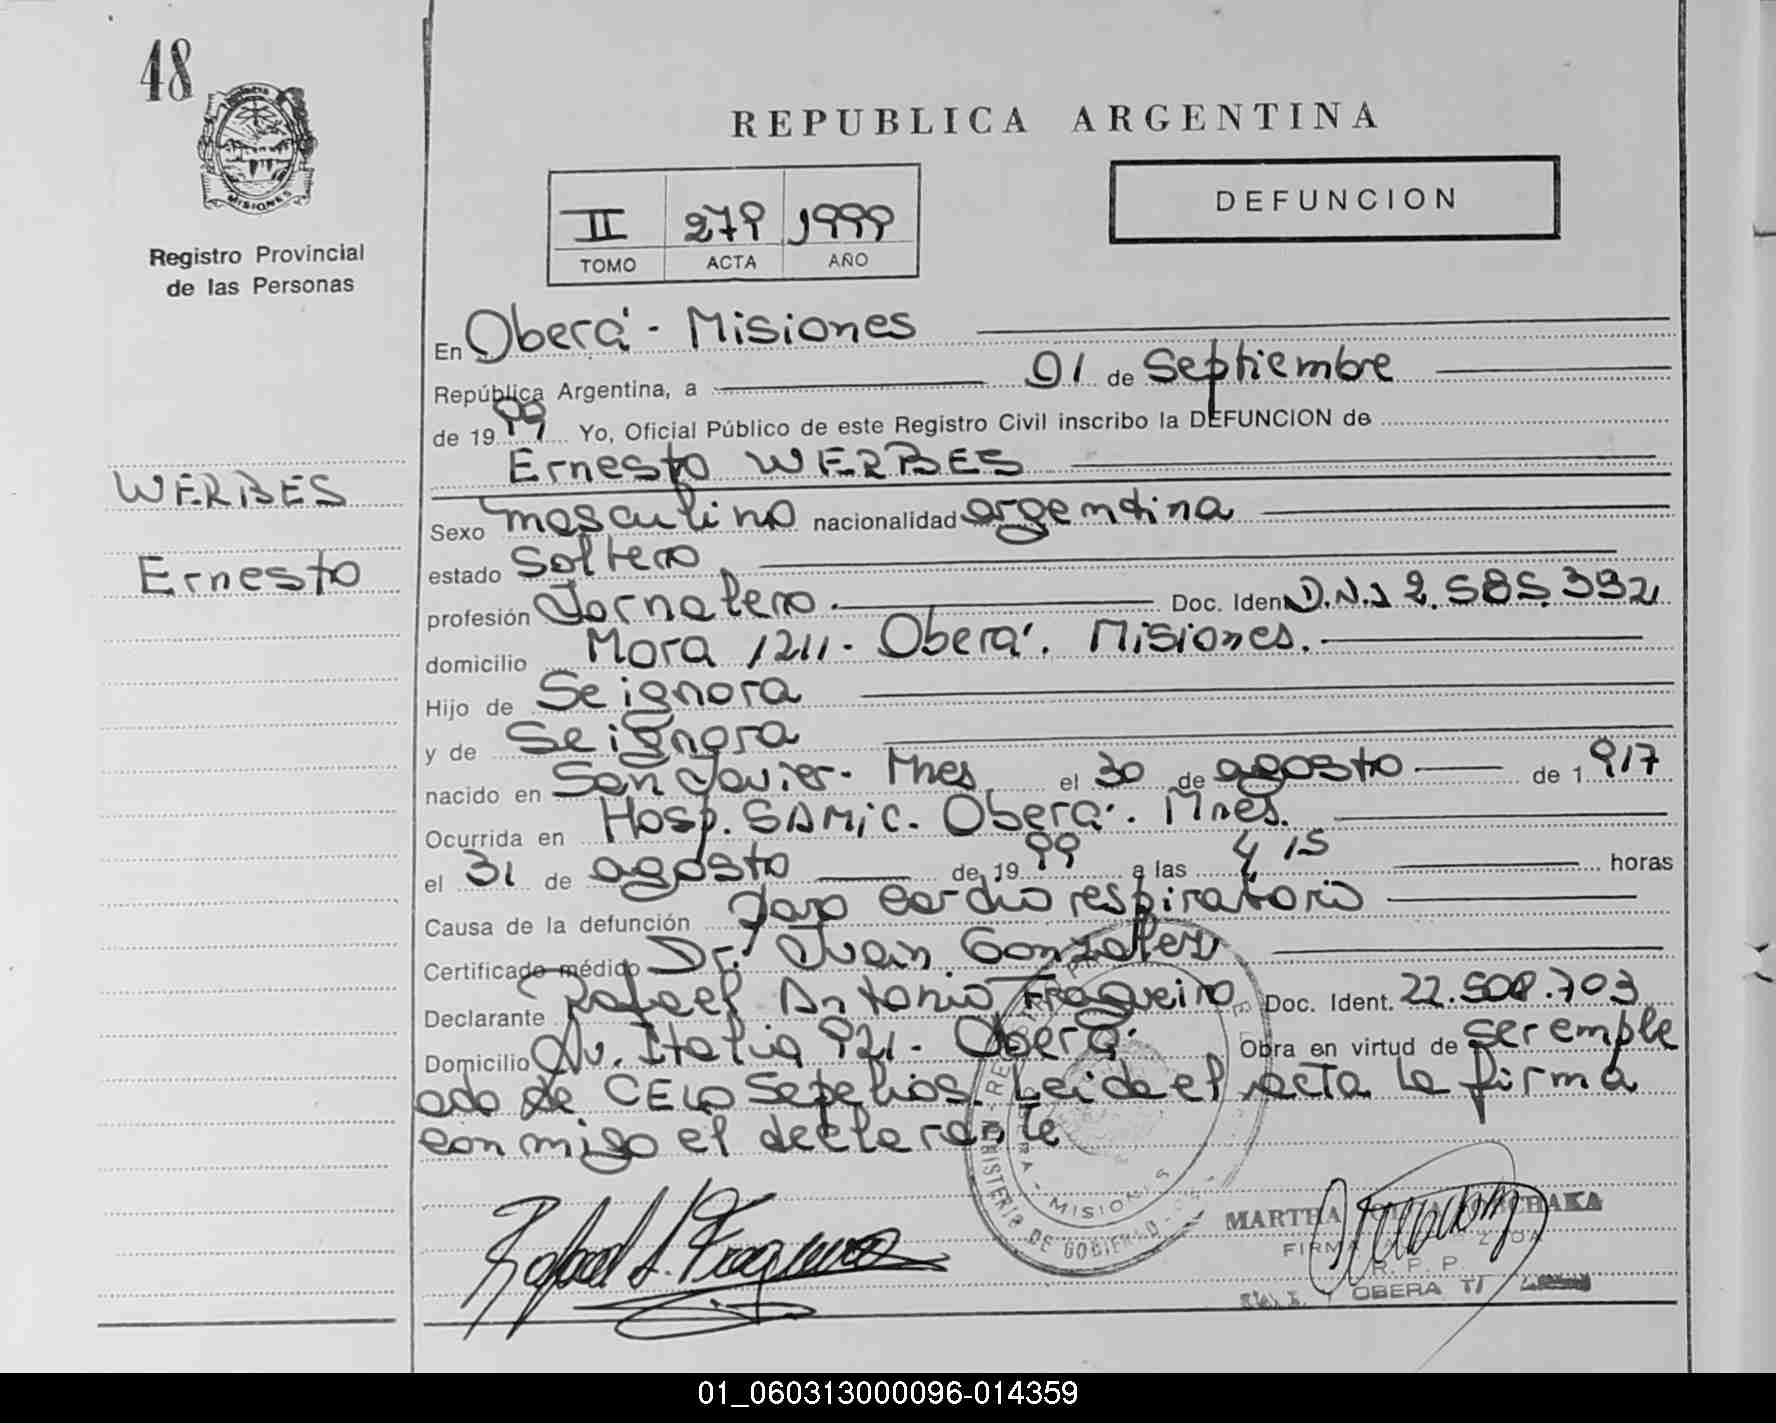 48
REPUBLICA ARGENTINA
DEFUNCION
II 279 1999
TOMO ACTA AÑO
MISIONES
Registro Provincial
de las Personas
En Oberá - Misiones
República Argentina, a 01 de Septiembre
de 1999 Yo, Oficial Público de este Registro Civil inscribo la DEFUNCION de
Ernesto WERBES
WERBES
Ernesto
Sexo masculino nacionalidad argentina
estado Soltero
profesión Jornalero. Doc. Iden D.N.I 2.585.392
domicilio Mora 1211- Oberá. Misiones.
Hijo de Se ignora
y de Se ignora
nacido en San Javier- Mnes el 30 de agosto de 1917
Ocurrida en Hosp. SAMIC. Oberá. Mnes.
el 31 de agosto de 1999 a las 4 15 horas
Causa de la defunción paro cardio respiratorio
Certificado médico Dr. Juan Gonzalez
Declarante Rafael Antonio Fragueiro Doc. Ident. 22.508.703
Domicilio Av. Italia 921- Oberá. Obra en virtud de ser emple
ado de CELO Sepelios. Leida el acta la firma
conmigo el declarante
MISIONES
MINISTERIO DE GOBIERNO
MARTHA
FIRMA
R. P. P.
OBERA
01_060313000096-014359